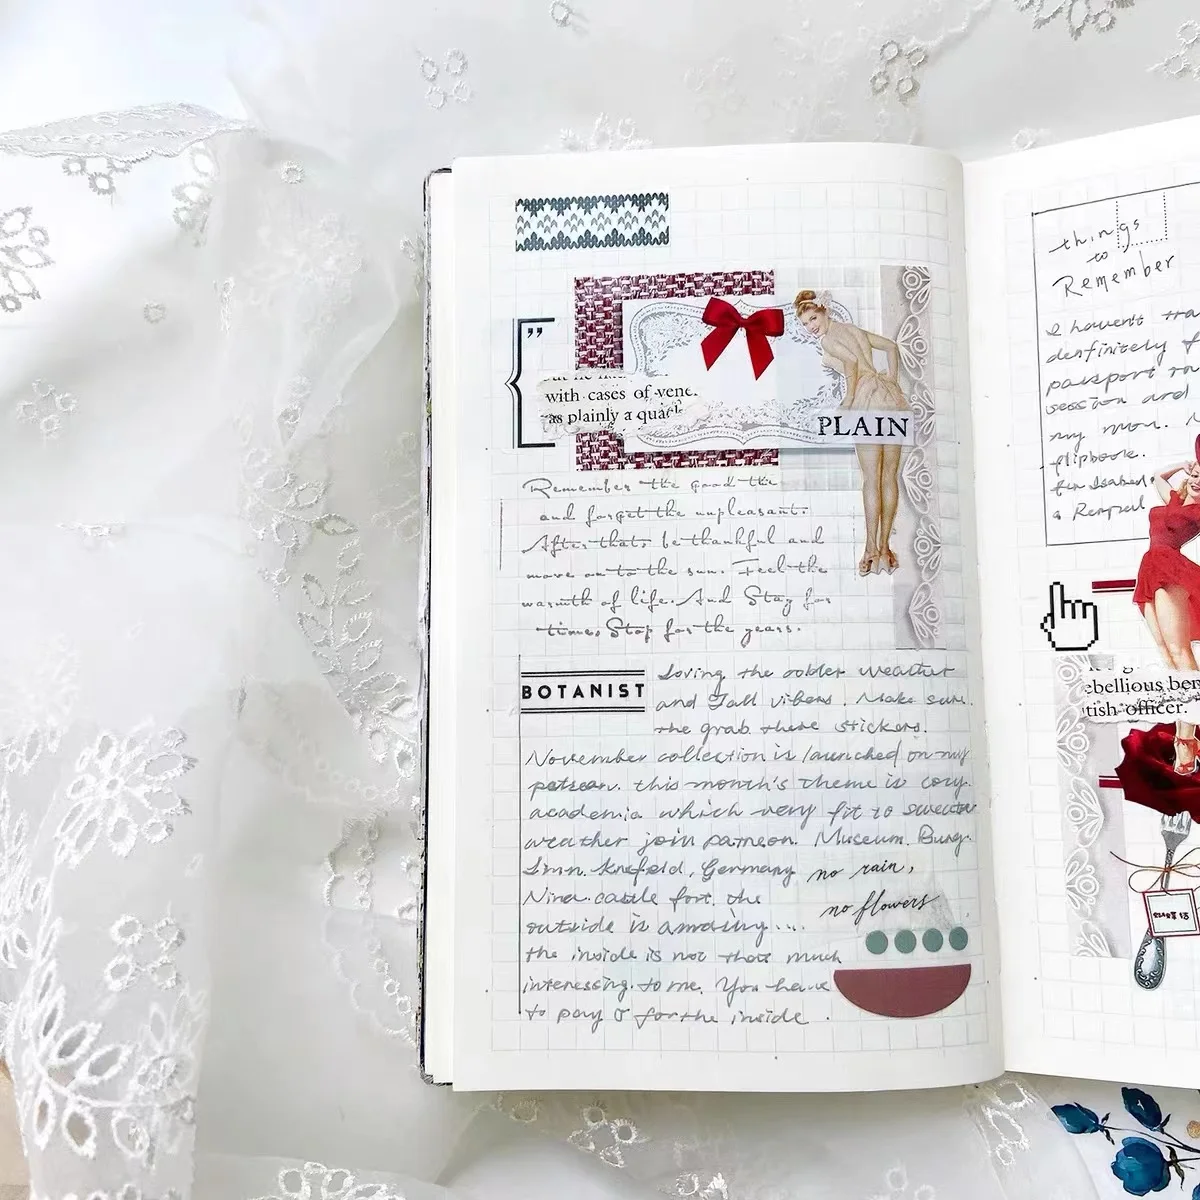 ”
with cases of vene
as plainly a quack
PLAIN
Remember the good the
and forget the unpleasant.
After that, be thankful and
move on to the sun. Feel the
warmth of life. And Stay for
time, Stop for the years.
BOTANIST
Loving the colder weather
and Fall vibes. Make sure
the grab these stickers.
November collection is launched on my
patreon. this month's theme is cozy
academia which very fit to sweater
weather join patreon. Museum Burg
Linn. Krefeld, Germany
no rain,
Nina castle fort. the
no flowers
outside is amazing...
the inside is not that much
interessing to me. You have
to pay for the inside.
things
to
Remember
I haven't tra
denfinitely f
passport
session and
my mon.
flipbook.
a
ebellious ben
tish officer.